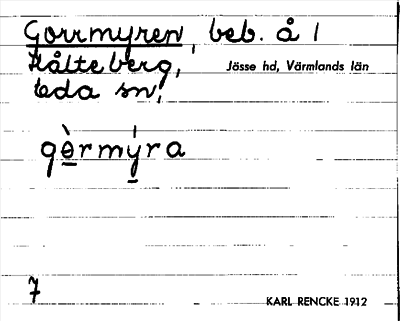 Gorrmyren, beb. å 1
Hålteberg, Jösse hd, Värmlands län
Eda sn,
gɵ̀rmýra
7
KARL RENCKE 1912